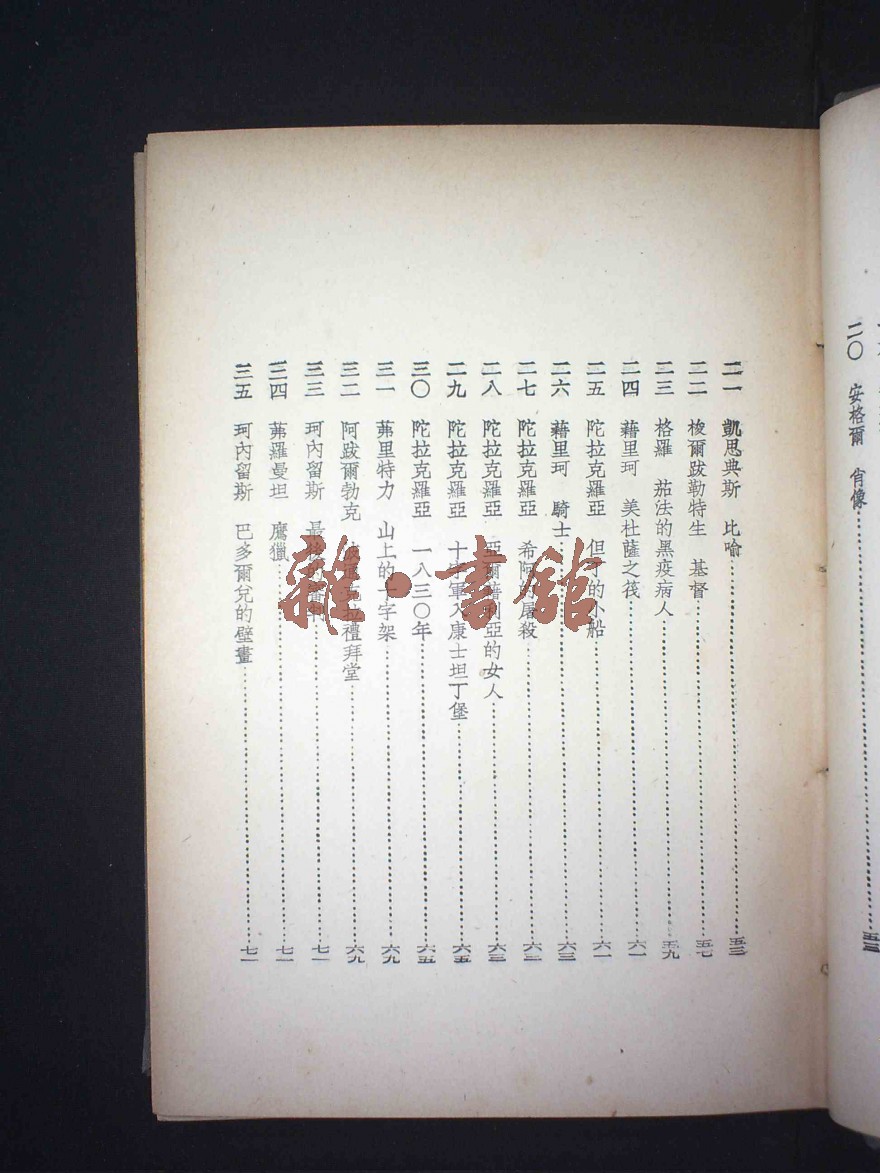 二〇 安格爾 肖像……五三
二一 凱思典斯 比喻……五三
二二 梭爾跋勒特生 基督……五七
二三 格羅 茄法的黑疫病人……五九
二四 藉里珂 美杜薩之筏……六一
二五 陀拉克羅亞 但丁的小船……六一
二六 藉里珂 騎士……六三
二七 陀拉克羅亞 希阿的屠殺……六三
二八 陀拉克羅亞 亞爾藉利亞的女人……六三
二九 陀拉克羅亞 十字軍入康士坦丁堡……六五
三〇 陀拉克羅亞 一八三〇年……六五
三一 茀里特力 山上的十字架……六九
三二 阿跋爾勃克 拉禮拜堂……六九
三三 珂內留斯 最後的審判……七一
三四 茀羅曼坦 鷹獵……七一
三五 珂內留斯 巴多爾兌的壁畫……七一
雜·書館